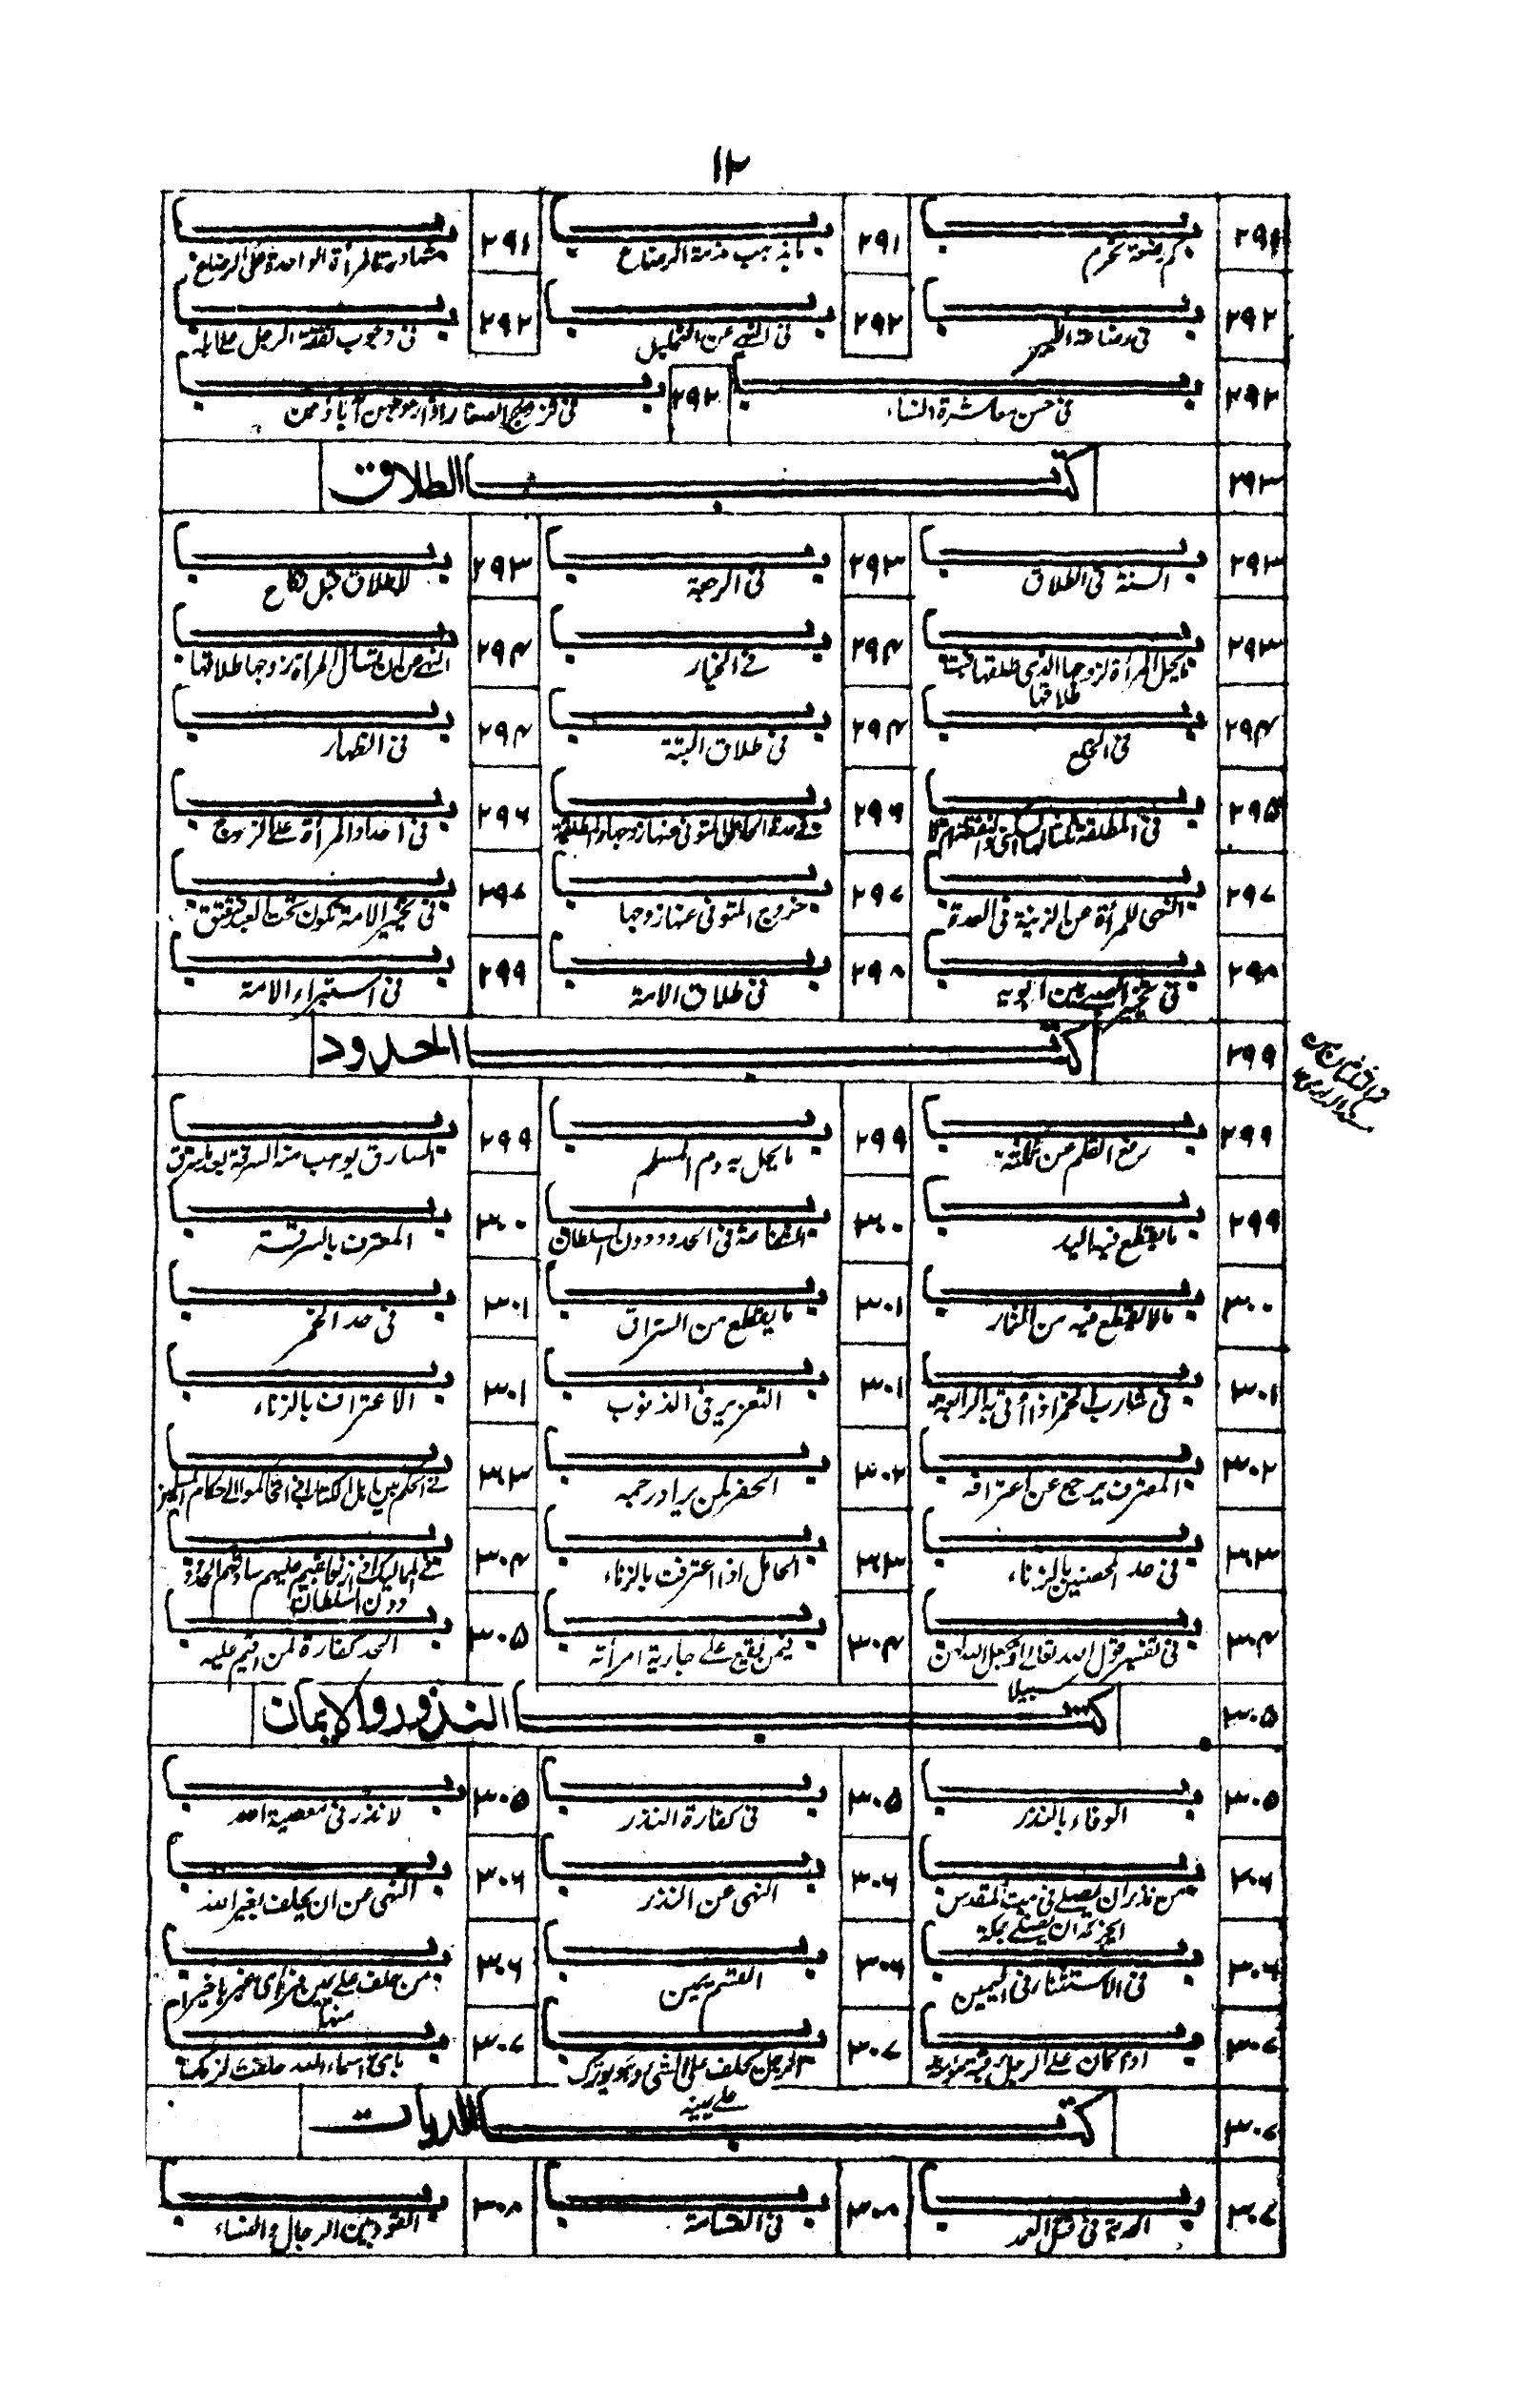 ١٢
٢٩١ باب كم رضعة تحرم ٢٩١ باب ما يذهب مذمة الرضاع ٢٩١ باب شهادة المرأة الواحدة على الرضاع
٢٩٢ باب في رضاعة ٢٩٢ باب في النهي عن التحليل ٢٩٢ باب في وجوب نفقة الرجل على
٢٩٢ باب في حسن معاشرة النساء ٢٩٢ باب في تزويج الصغار اذا زوجهن آباؤهن
٢٩٣ كتاب الطلاق
٢٩٣ باب السنة في الطلاق ٢٩٣ باب في الرجعة ٢٩٣ باب لا طلاق قبل نكاح
٢٩٣ باب ما يحل المرأة لزوجها الذي طلقها
طلاقها ٢٩٤ باب في الخيار ٢٩٤ باب النهي عن ان تسأل المرأة زوجها طلاقها
٢٩٤ باب في الخلع ٢٩٤ باب في طلاق البتة ٢٩٤ باب في الظهار
٢٩٥ باب في المطلقة ثلثا لها ٢٩٦ باب في عدة الحامل المتوفى عنها زوجها والمطلقة ٢٩٦ باب في احداد المرأة على الزوج
٢٩٧ باب النهي للمرأة عن الزينة في العدة ٢٩٧ باب خروج المتوفى عنها زوجها ٢٩٧ باب في تخيير الامة تكون تحت العبد فتعتق
٢٩٨ باب في تخيير الصبي بين ابويه ٢٩٨ باب في طلاق الامة ٢٩٩ باب في استبراء الامة
٢٩٩ كتاب الحدود
٢٩٩ باب رفع القلم عن ثلثة ٢٩٩ باب ما يحل به دم المسلم ٢٩٩ باب السارق يوهب منه السرقة بعد ما سرق
٢٩٩ باب ما يقطع فيه اليد ٣٠٠ باب الشفاعة في الحدود دون السلطان ٣٠٠ باب المعترف بالسرقة
٣٠٠ باب ما لا يقطع فيه من الثمار ٣٠١ باب ما يقطع من السراق ٣٠١ باب في حد الخمر
٣٠١ باب في شارب الخمر اذا أتي به الرابعة ٣٠١ باب التعزير في الذنوب ٣٠١ باب الاعتراف بالزناء
٣٠٢ باب المعترف يرجع عن اعترافه ٣٠٢ باب الحفر لمن يراد رجمه ٣٠٣ باب في الحكم بين اهل الكتاب اذا تحاكموا الى حكام المسلمين
٣٠٣ باب في حد المحصنين بالزناء ٣٠٣ باب الحامل اذا اعترفت بالزناء ٣٠٤ باب في المماليك اذا زنوا يقيم عليهم ساداتهم الحدود
دون السلطان
٣٠٤ باب في تفسير قول الله تعالى او يجعل الله لهن
سبيلا ٣٠٤ باب فيمن يقع على جارية امرأته ٣٠٥ باب الحد كفارة لمن اقيم عليه
٣٠٥ كتاب النذور والايمان
٣٠٥ باب الوفاء بالنذر ٣٠٥ باب في كفارة النذر ٣٠٥ باب لا نذر في معصية الله
٣٠٦ باب من نذر ان يصلي في بيت المقدس
ايجزئه ان يصلي بمكة ٣٠٦ باب النهي عن النذر ٣٠٦ باب النهي عن ان يحلف بغير الله
٣٠٦ باب في الاستثناء في اليمين ٣٠٦ باب القسم يمين ٣٠٦ باب من حلف على يمين فرأى غيرها خيرا
منها
٣٠٧ باب اذا كان على الرجل رقبة مؤمنة ٣٠٧ باب الرجل يحلف على الشيء وهو يورك
على يمينه ٣٠٧ باب باي اسماء الله حلفت لزمك
٣٠٧ كتاب الديات
٣٠٧ باب الدية في قتل العمد ٣٠٨ باب في القسامة ٣٠٨ باب القود بين الرجال والنساء